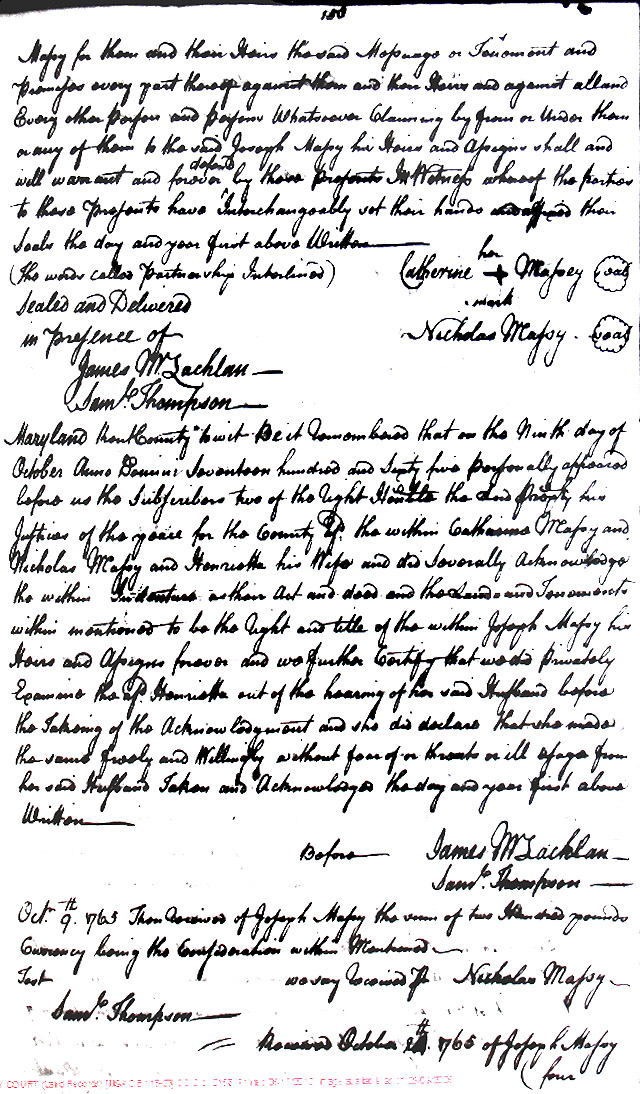 156
Massy for them and their Heirs the said Messuage or Tenement and
Premises every part thereof against them and their Heirs and against all and
Every other Person and Persons Whatsoever Claiming by from or Under them
or any of them to the said Joseph Massy his Heirs and Assigns shall and
will warrant and forever defend by these presents In Witness whereof the parties
to these Presents have Interchangeably set their hands and affixed their
Seals the day and year first above Written
(The words called Partnership Interlined) Catherine her + mark Massey Seal
Sealed and Delivered
in presence of Nicholas Massy. Seal
James McLachlan
Saml. Thompson
Maryland Kent County to wit Be it remembered that on the Ninth day of
October Anno Domini Seventeen hundred and Sixty five personally appeared
before us the Subscribers two of the Right Honble the Lord Propty his
Justices of the peace for the County afd. the within Catharine Massy and
Nicholas Massy and Henrietta his Wife and did Severally Acknowledge
the within Indenture as their Act and deed and the Lands and Tenements
within mentioned to be the Right and title of the within Joseph Massy his
Heirs and Assigns forever and we further Certify that we did Privately
Examine the sd. Henrietta out of the hearing of her said Husband before
the Takeing of the Acknowledgment and she did declare that she made
the same freely and Willingly without fear of or threats or ill usage from
her said Husband Taken and Acknowledged the day and year first above
Written
Before James McLachlan
Saml. Thompson
Octr. 9th. 1765 Then Received of Joseph Massy the sum of two Hundred pounds
Currency being the Consideration within Mentioned
Test we say Received Pr Nicholas Massy
Saml. Thompson
Received October 1765 of Joseph Massy
four